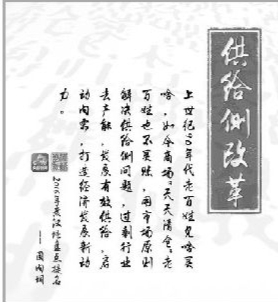 供给侧改革
上世纪90年代老百姓见啥买
啥，如今商场“天天清仓”老
百姓也不买账，用市场原则
解决供给侧问题，过剩行业
去产能，发展有效供给，启
动内需，打造经济发展新动
力。
2016年武汉经
——周